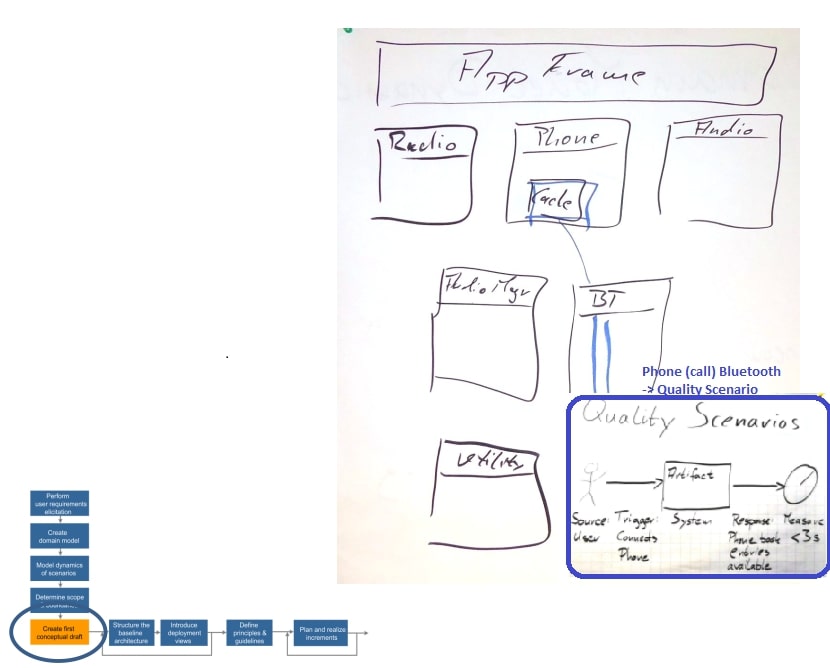 App Frame
Radio
Phone
Audio
Cache
Audio Mgr
BT
Phone (call) Bluetooth
-> Quality Scenario
Quality Scenarios
Artifact
Source: Trigger: System Response: Measure
User Connects Phone book <3s
Phone entries
available
Utility
Perform
user requirements
elicitation
Create
domain model
Model dynamics
of scenarios
Determine scope
Create first
conceptual draft
Structure the
baseline
architecture
Introduce
deployment
views
Define
principles &
guidelines
Plan and realize
increments